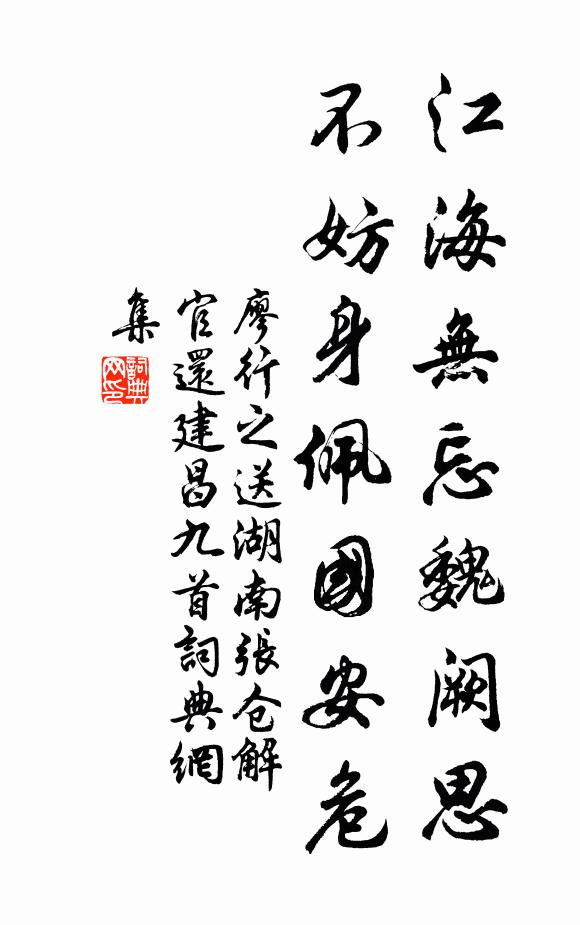 江海無忘魏闕思
不妨身佩國安危
廖行之送湖南張仓解
官還建昌九首詞典網
集
詞典
网印